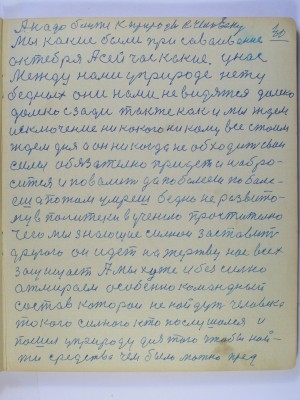 А надо ближе к природи к человеку
Мы какие были при сваивание
октебря А сейчас какие, у нас
Между нами и природе нету
бедных они нами не видятся далеко
далеко сзади также как и мы ждем
исключение никакого никому все стоим
ждем дня а он никогда не обходит свои
силы обязательно придет и набро-
сится и повалит да поболеем поболе-
еш а потом умреш бедно не развито-
му в политеки в ученью простительно
чего мы знающие силной заставит
другого он идет на жертву нас всех
защищает А мы хуже и без силно
отмираем особенно командный
состав которои не найдут человека
такого силного кто послушался и
пошел у природу для того чтобы най-
ти средство чем было можно пред